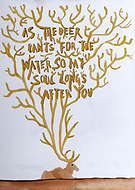 AS THE DEER
PANTS FOR THE
WATER, SO MY
SOUL LONGS
AFTER YOU